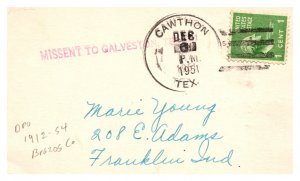 CAWTHON
DEC
6
P.M.
1951
TEX.
1 CENT 1
MISSENT TO GALVESTON
DPO
1912-54
Brazos Co
Marie Young
208 E. Adams
Franklin Ind.